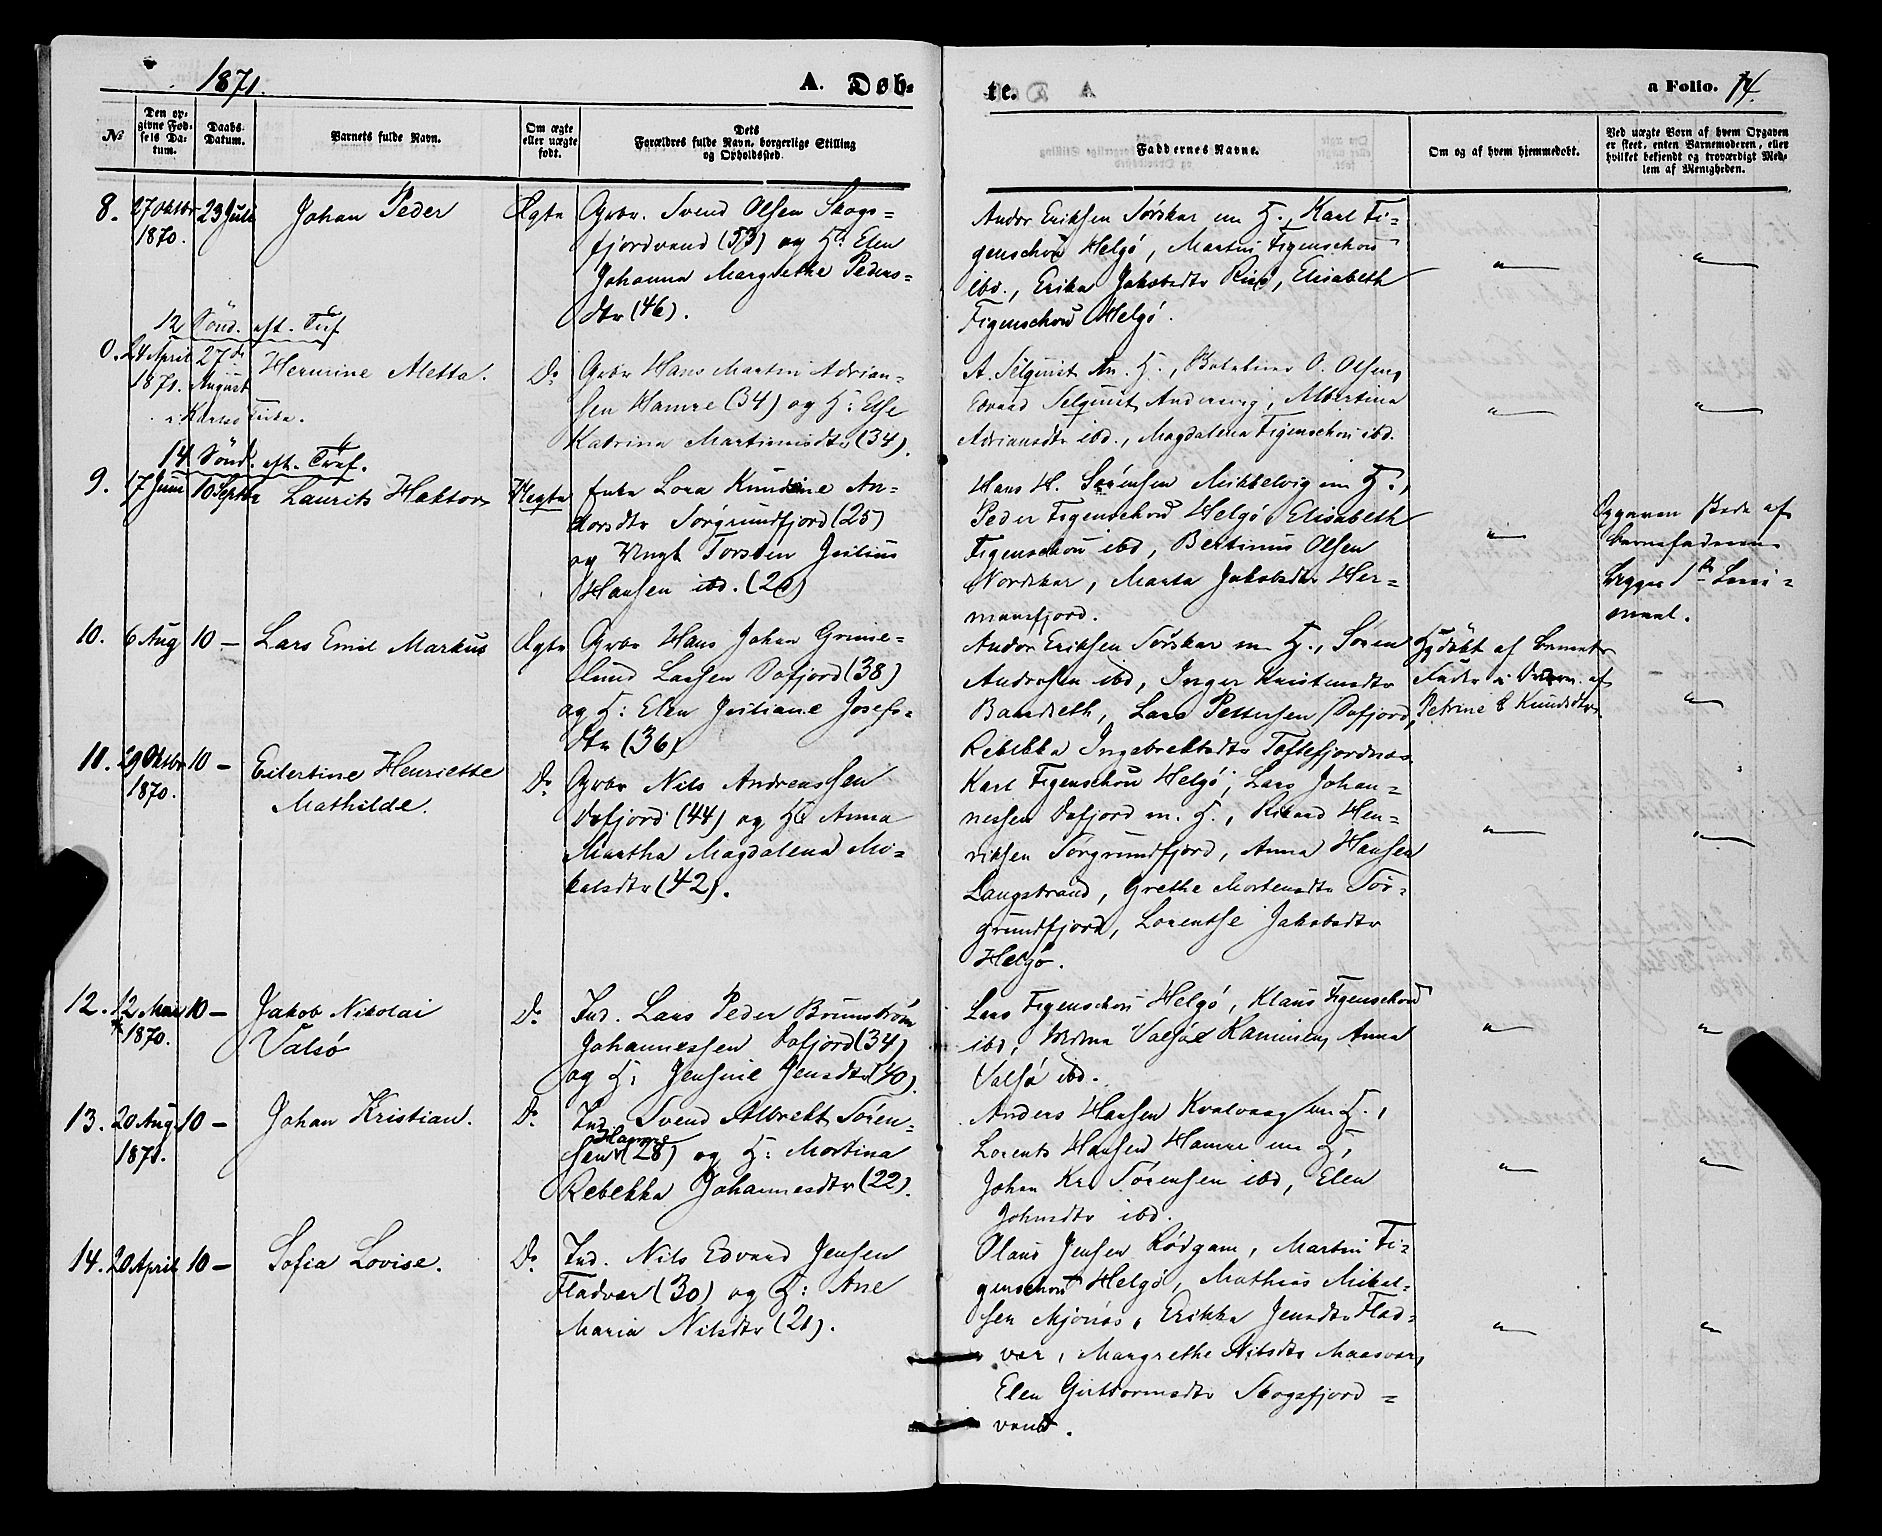 1871.
A. Døb-
te.
a Folio. 14.
No
Den op-
givne Fød-
sels Da-
tum.
Daabs-
Datum.
Barnets fulde Navn.
Om ægte
eller uægte
født.
Dets
Forældres fulde Navn, borgerlige Stilling
og Opholdssted.
Faddernes Navne.
Om og af hvem hjemmedøbt.
Ved uægte Børn af hvem Opgaven
er skeet, enten Barnemoderen, eller
hvilket bekjendt og troværdigt Med-
lem af Menigheden.
8.
27 Oktbr
1870.
23 Juli
Johan Peder
Ægte
Grbr. Svend Olsen Skogs-
fjordvand (53) og H: Elen
Johanna Margrethe Peders-
dtr (46).
Andor Eriksen Sørskar m H., Karl Fi-
genschou Helgø, Martin Figenschou
ibd., Erika Jakobsdtr , Elisabeth
Figenschou Helgø.
12 Sønd. eft. Tref.
0.
24 April
1871.
27de
August
i Karlsø Kirke.
Hermine Aletta.
Do
Grbr Hans Martin Adrian-
sen Hamre (34) og H: Else
Katrina Martinusdtr (34).
A. Selquist m. H., O. Olsen,
Edvard Selquist, Albertina
Adriansdtr ibd., Magdalena Figenschou ibd.
14 Sønd. eft. Tref.
9.
17 Juni
10 Septbr
Laurits Haktor
Uægte
Lora Knudsine An-
dorsdtr Sørgrundfjord (25)
og Ungk Torsten Julius
Hansen ibd. (20)
Hans H. Sørensen Mikkelvig m H.,
Peder Figenschou Helgø, Elisabeth
Figenschou ibd, Bertinus Olsen
Nordskar, Marta Jakobsdtr Her-
mansfjord.
Opgaven skede af
barnefaderen.
begges 1ste Leier-
maal.
10.
6 Aug
10 —
Lars Emil Markus
Ægte
Grbr Hans Johan Grime-
lund Larsen Dafjord (38)
og H: Elen Juliane Josefs-
dtr (36)
Andor Eriksen Sørskar m H., Søren
Andersen ibd, Inger Kristensdtr
Bardseth, Lars Pettersen Dafjord,
Rebekka Ingebrektsdtr Toftefjordnes.
Hjdøbt af barnets
Fader i Overv. af
Petrine Knudsdtr.
11.
29 Oktbr
1870.
10 —
Eilertine Henriette
Mathilde.
Do
Grbr Nils Andreassen
Dafjord (44) og H: Anna
Martha Magdalena Mi-
kelsdtr (42).
Karl Figenschou Helgø, Lars Johan-
nessen Dafjord m. H., Rikard Hen-
riksen Sørgrundfjord, Anna Hansen
Langstrand, Grethe Mortensdtr Sør-
grundfjord, Lorentse Jakobsdtr
Helgø.
12.
12 Mai
1870.
10 —
Jakob Nikolai
Valsø
Do
Ind. Lars Peder Brunstrøm
Johannessen Dafjord (34)
og H: Jensine Jensdtr (40).
Lars Figenschou Helgø, Klaus Figenschou
ibd, Valsøe Kammen, Anna
Valsø ibd.
13.
20 Aug
1871.
10 —
Johan Kristian.
Do
Ind. Svend Albrekt Søren-
sen Hamre (28) og H: Martina
Rebekka Johannesdtr (22).
Anders Hansen Kvalvaag m H.,
Lorents Hansen Hamre m H,
Johan Kr. Sørensen ibd, Elen
Johnsdtr ibd.
14.
20 April
10 —
Sofia Lovise.
Do
Ind. Nils Edvard Jensen
Fladvær (30) og H: Ane
Maria Nilsdtr (21).
Olaus Jensen Rødgam, Martin Fi-
genschou Helgø, Mathias Mikel-
sen Mjønes, Erikka Jensdtr Flad-
vær, Margrethe Nilsdtr Maasvær,
Elen Guttormsdtr Skogsfjord-
vand.